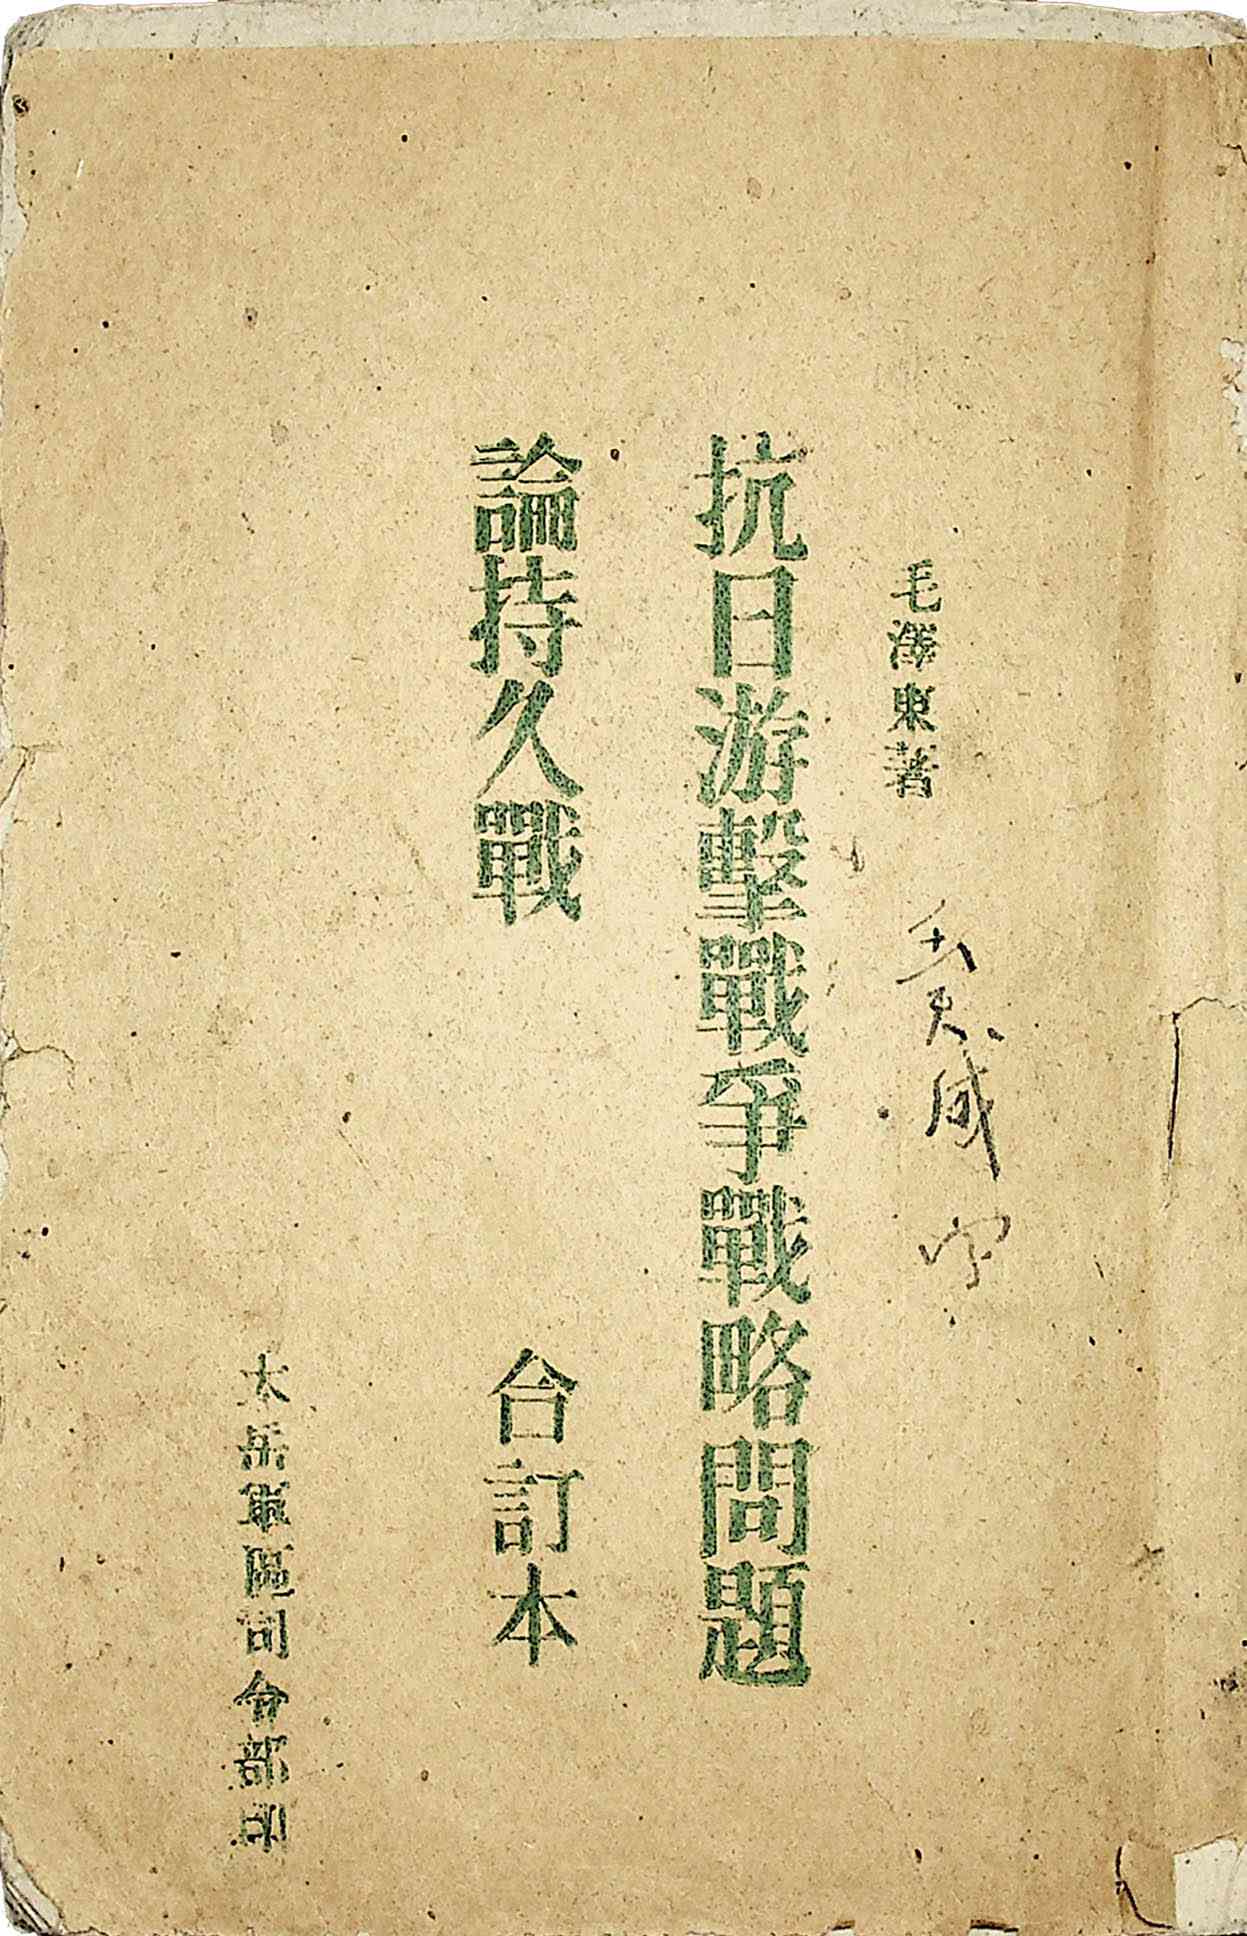 毛澤東著
抗日游擊戰爭戰略問題
論持久戰
合訂本
太岳軍區司令部印